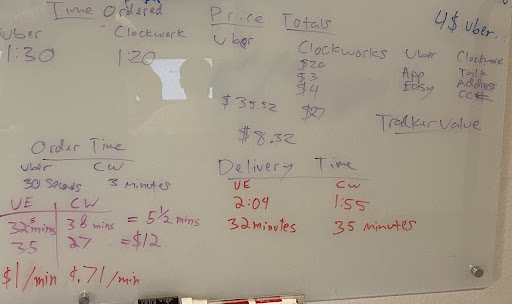 Time Ordered
Uber Clockwork
1:30 1:20
Price Totals
Uber Clockworks
$20
$3
$4
$35.52 $27
$8.32
4$ uber.
Uber Clockwork
App Talk
Easy Address
CC#
Tracker Value
Order Time
Uber CW
30 Seconds 3 Minutes
UE CW
32 mins 38 mins = 5 1/2 mins
35 27 = $12
$1/min $.71/min
Delivery Time
UE CW
2:04 1:55
32 minutes 35 minutes